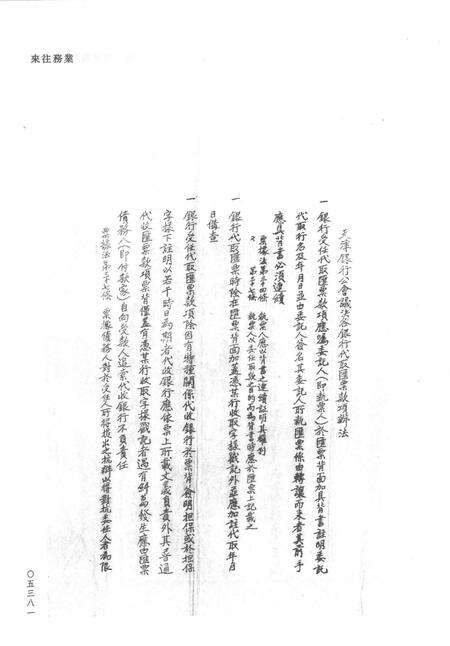 來往務業
天津銀行公會議決各銀行代取匯票款項辦法
一 銀行受任代取匯票款項應囑委託人(即執票人)於匯票背面加具背書註明委託
代取行名及年月日並由委託人簽名其委託人所執匯票係由轉讓而來者其前手
應具背書必須連續
票據法第三十四條 執票人應以背書之連續証明其權利
又 第三十七條 執票人以委任取款之目的而為背書時應於匯票上記載之
一 銀行代取匯票時除在匯票背面加蓋憑某行收取字樣戳記外並應加註代取年月
日備查
一 銀行受任代取匯票款項除因有特種關係代收銀行於票背簽明担保或於担保
字樣下註明以若干時日為期者代收銀行應依票上所載文義負責外其普通
代收匯票款項票背僅蓋有憑某行收取字樣戳記者遇有糾葛發生應由匯票
債務人(即付款家)自向受款人追索代收銀行不負責任
票據法第三十七條 票據債務人對於受任人所得提出之抗辯以得對抗委任人者為限
〇五三八一